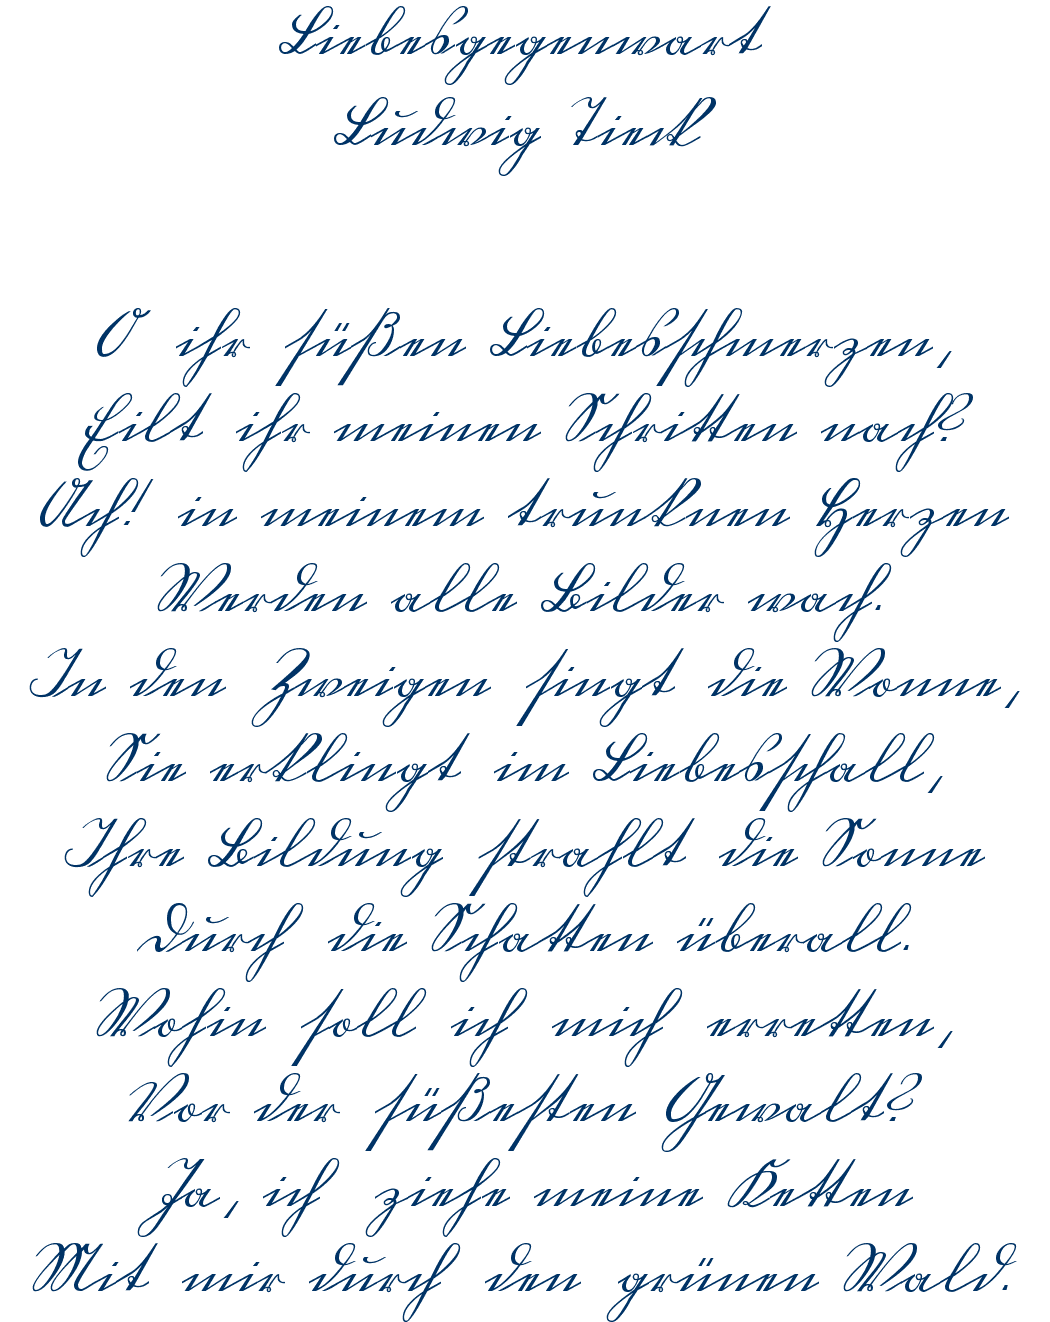 Liebesgegenwart
Ludwig Tieck
O ihr süßen Liebesschmerzen,
Eilt ihr meinen Schritten nach?
Ach! in meinem trunknen Herzen
Werden alle Bilder wach.
In den Zweigen singt die Wonne,
Sie erklingt im Liebesschall,
Ihre Bildung strahlt die Sonne
Durch die Schatten überall.
Wohin soll ich mich erretten,
Vor der süßesten Gewalt?
Ja, ich ziehe meine Ketten
Mit mir durch den grünen Wald.